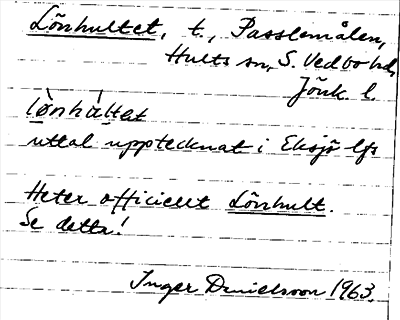 Lönhultet, t., Passlemålen,
Hults sn, S. Vedbo hd,
Jönk. l.
lö̀nhúltet
uttal upptecknat i Eksjö lfs
Heter officiellt Lönhult.
Se detta!
Inger Danielsson 1963.